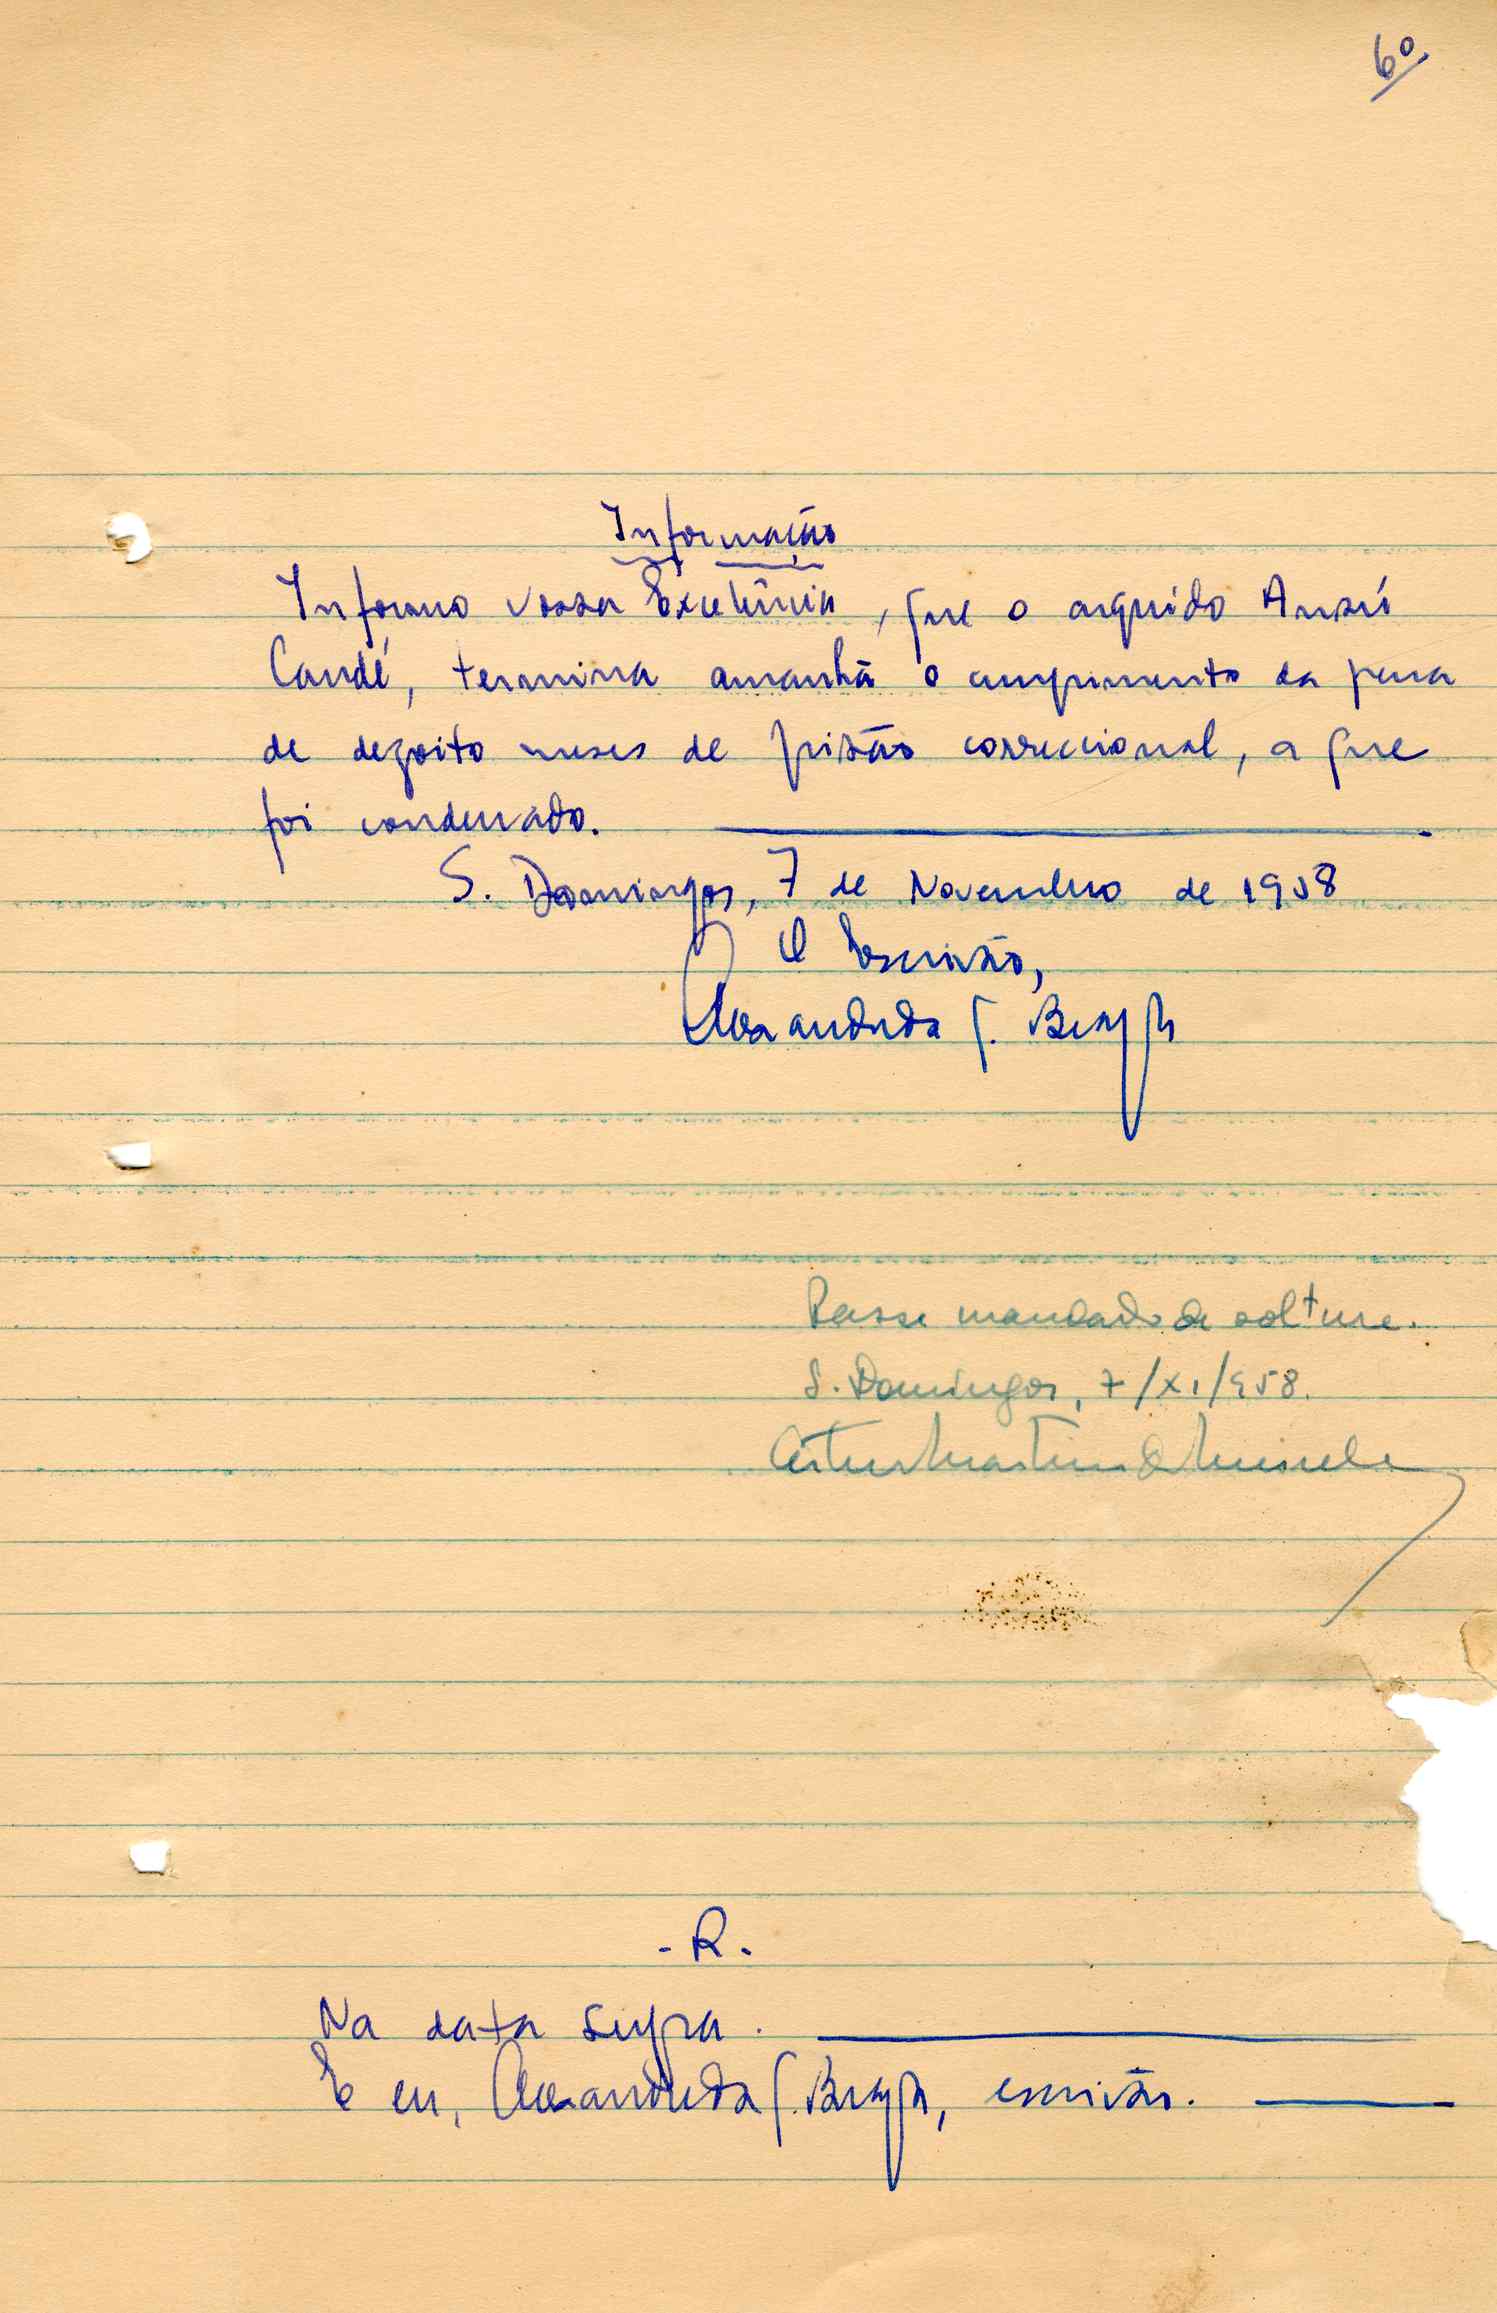 60
Informação
Informo Vossa Excelência, que o arguido Ansú
Candé, termina amanhã o cumprimento da pena
de dezoito meses de prisão correccional, a que
foi condenado.
S. Domingos, 7 de Novembro de 1958
O Escrivão,
Passe mandado de soltura.
S. Domingos, 7/XI/958.
- R. 
Na data supra.
E eu, escrivão.